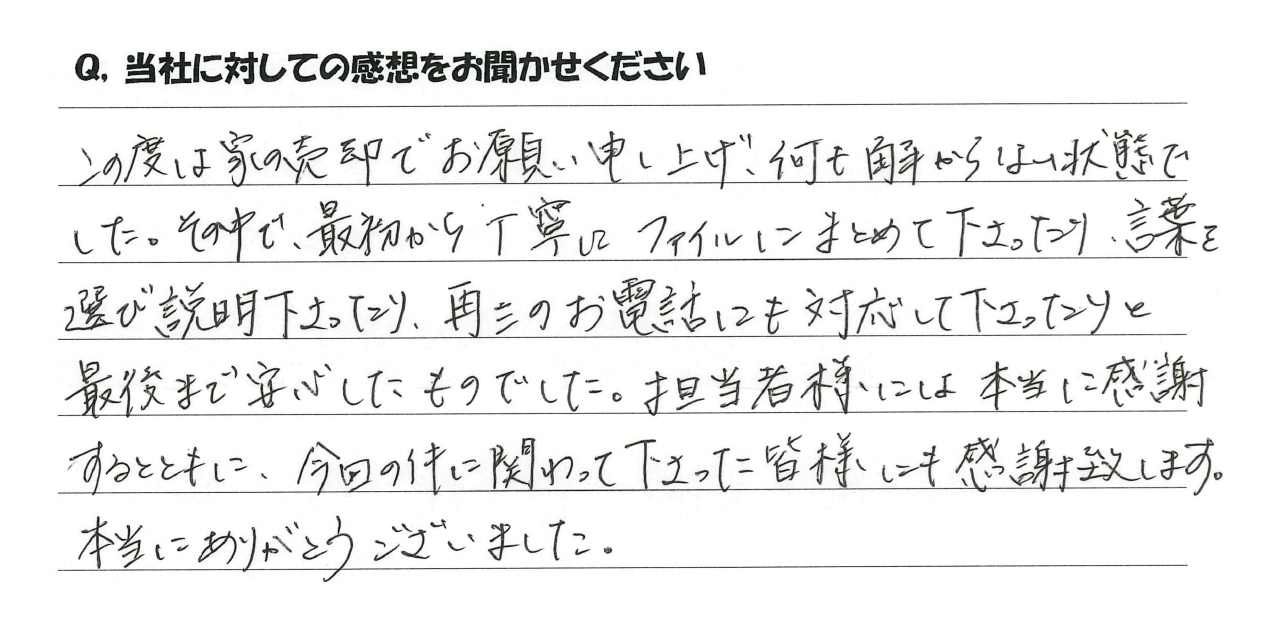 Q. 当社に対しての感想をお聞かせください
この度は家の売却でお願い申し上げ、何も解からない状態で
した。その中で、最初から丁寧にファイルにまとめて下さったり、言葉を
選び説明下さったり、再三のお電話にも対応して下さったりと
最後まで安心したものでした。担当者様には本当に感謝
するとともに、今回の件に関わって下さった皆様にも感謝致します。
本当にありがとうございました。